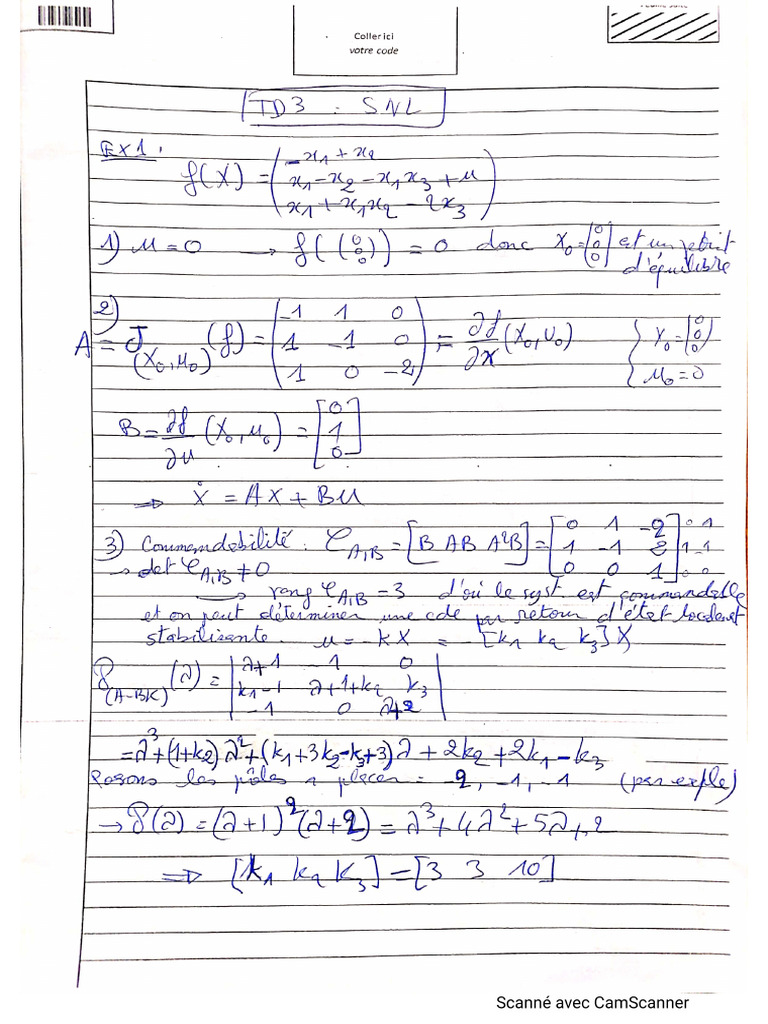 Coller ici
votre code
TD3 . SNL
Ex1.
f(X) = ( -x1 + x2
x1 - x2 - x1x3 + u
x1 + x1x2 - 2x3 )
1) u = 0 → f((0 0 0)) = 0 donc X0 = [0 0 0] est un point
d'équilibre
2)
A = J(X0,u0) (f) = ( -1 1 0
1 -1 0
1 0 -2 ) = ∂f/∂x (X0, U0) { X0 = (0 0 0)
{ u0 = 0
B = ∂f/∂u (X0, u0) = [0 1 0]
→ Ẋ = AX + BU
3) Commandabilité : C A,B = [B AB A²B] = [ 0 1 -2
1 -1 2
0 0 1 ]
→ det C A,B ≠ 0
→ rang C A,B = 3 d'où le syst. est commandable
et on peut déterminer une cde par retour d'état localemt
stabilisante. u = -KX = -[k1 k2 k3] X
P(A-BK) (λ) = | λ+1 -1 0
k1-1 λ+1+k2 k3
-1 0 λ+2 |
= λ³ + (1+k2) λ² + (k1 + 3k2 - k3 + 3) λ + 2k2 + 2k1 - k3
Posons les pôles à placer = -2, -1, -1 (par exple)
→ P(λ) = (λ+1)² (λ+2) = λ³ + 4λ² + 5λ + 2
⇒ [k1 k2 k3] = [3 3 10]
Scanné avec CamScanner